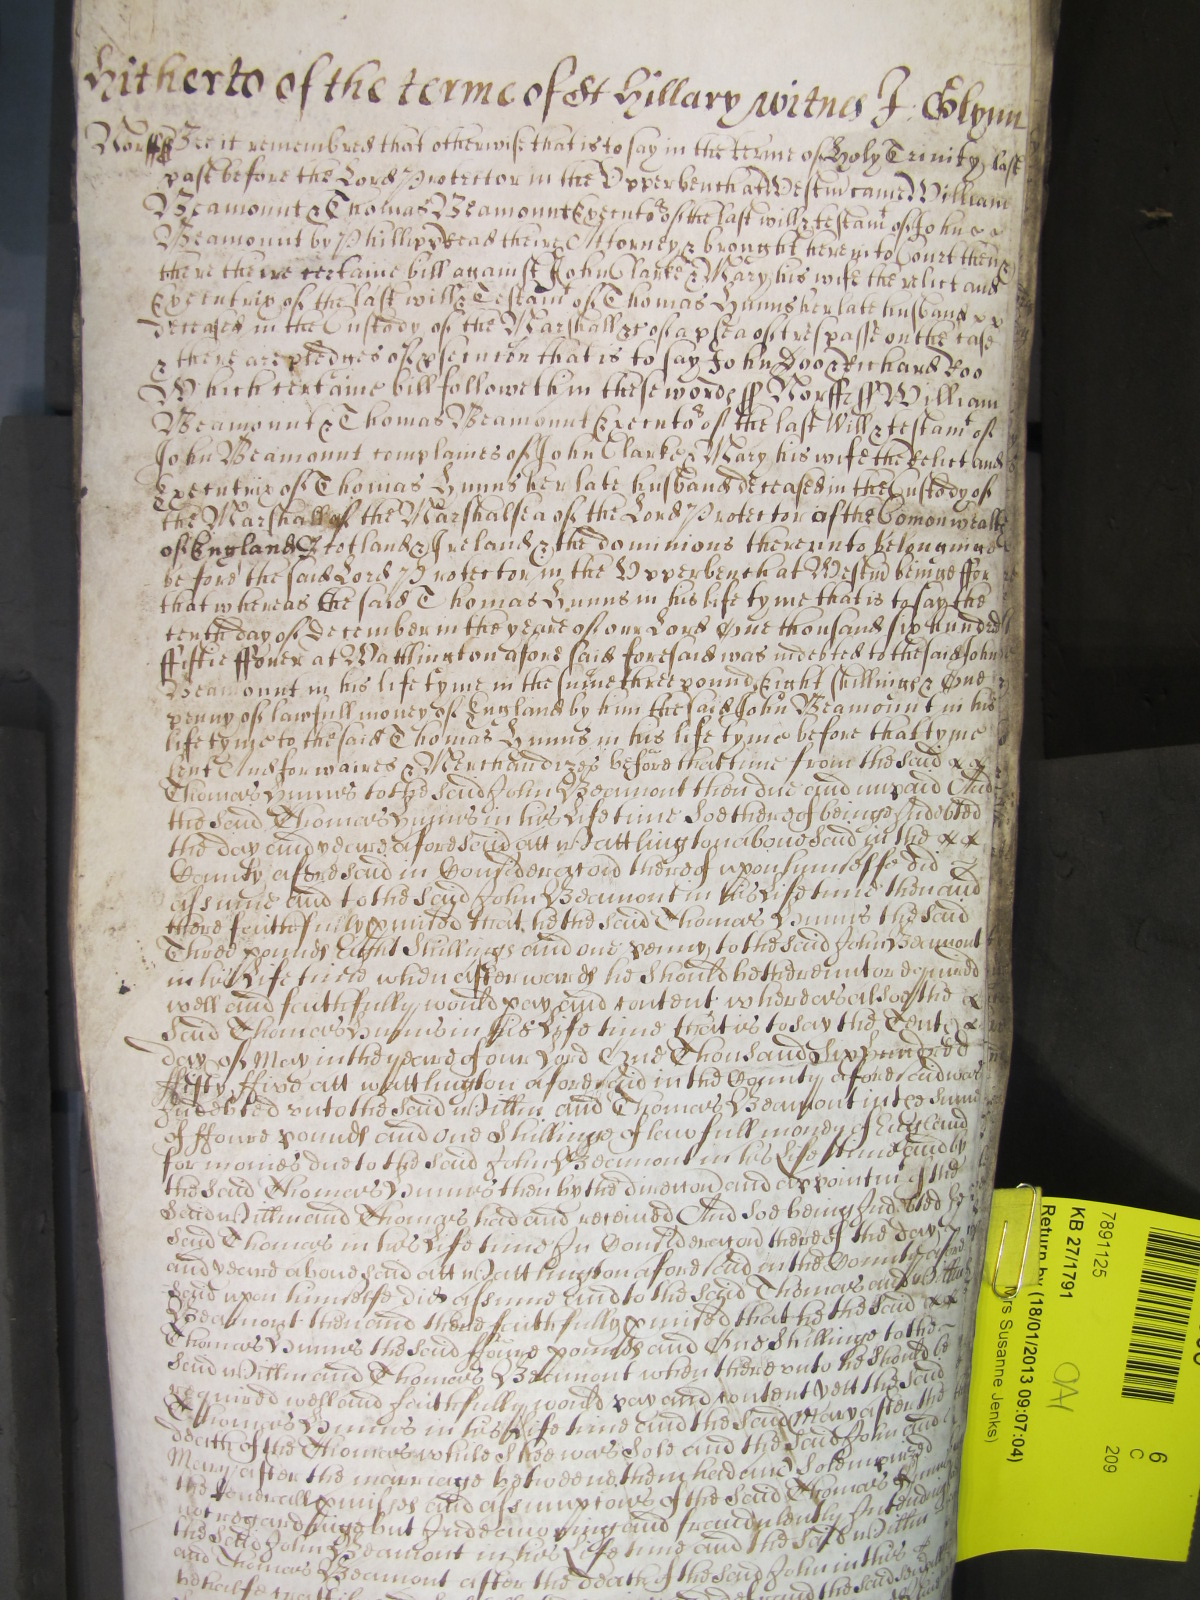 Hitherto of the terme of St Hillary witnes J. Glynn
Norff ss Bee it remembred that otherwise that is to say in the terme of Holy Trinity last
past before the Lord Protector in the Upper bench att Westm came William
Beamount & Thomas Beamount Executors of the last will & testamt of John
Beamount by Phillipp Read theire Attorney & brought here into Court then
there theire certaine bill against John Clarke & Mary his wife the relict and
Executrix of the last will & Testamt of Thomas Hunns her late husband
deceased in the Custody of the Marshall &c of a plea of trespasse on the case
& there are pledges of psecucon that is to say John Doo & Richard Roo
Which certaine bill followeth in these words ss Norff ss William
Beamount & Thomas Beamount Executors of the last Will & testamt of
John Beamount complaines of John Clarke & Mary his wife the Relict and
Executrix of Thomas Hunns her late husband deceased in the Custody of
the Marshall of the Marshalsea of the Lord Protector of the Comonwealth
of England Scotland & Ireland & the dominions thereunto belonginge
before the said Lord Protector in the Upper bench at Westm beinge ffor
that whereas the said Thomas Hunns in his life tyme that is to say the
tenth day of December in the yeare of our Lord One thousand six hundred
ffiftie ffower at Wattlington afore said foresaid was indebted to the said John
Beamount in his life tyme in the sume three pound Eight shillings & One
penny of lawfull money of England by him the said John Beamount in his
life tyme to the said Thomas Hunns in his life tyme before that tyme
lent And for waires & Merchandizes before that time from the said
Thomas Hunns to the said John Beamont then due and unpaid And
the said Thomas Hunns in his Life time Soe thereof beinge Indebted
the day and yeare aforesaid att Wattlington abovesaid in the
County aforesaid in Consideracion thereof upon himselfe did
assume and to the said John Beamont in his Life time then and
there faithfully pmised that he the said Thomas Hunns the said
Three pounds Eight Shillings and one penny to the said John Beamont
in his Life time when afterwards he should be thereunto required
well and faithfully would pay and content whereas alsoe the
said Thomas Hunns in his Life time that is to say the Tenth
day of May in the yeare of our Lord One Thousand Six hundred
ffifty ffive att Wattlington aforesaid in the County aforesaid was
Indebted unto the said Willm and Thomas Beamont in the Summ
of ffoure pounds and one Shillinge of lawfull money of England
for monies due to the said John Beamont in his Life time and by
the said Thomas Hunns then by the direccon and appointmt of the
said Willm and Thomas had and received And soe being Indebted he
said Thomas in his Life time In Consideracon thereof the day
and yeare abovesaid att Wattlington aforesaid in the County afore
said upon himselfe did assume and to the said Thomas and Willm
Beamont then and there faithfully pmised that he the said
Thomas Hunns the said ffoure pounds and One Shillinge to the
said Willm and Thomas Beamont when thereunto he should be
required well and faithfully would pay and content Yett the said
Thomas Hunns in his Life time and the said Mary after the
death of the Thomas while shee was Sole and the said John and
Mary after the marriage betweene them had and Solemnized
the severall pmises and assumptons of the said Thomas Hunns
not regardinge but Indeavoringe and fraudulently Intending
the said John Beamont in his Life time and the said Willm
and Thomas Beamont after the death of the said John in this
behalfe
7891125
KB 27/1791
Return by (18/01/2013 09:07:04)
rs Susanne Jenks)
OA1
6
C
209